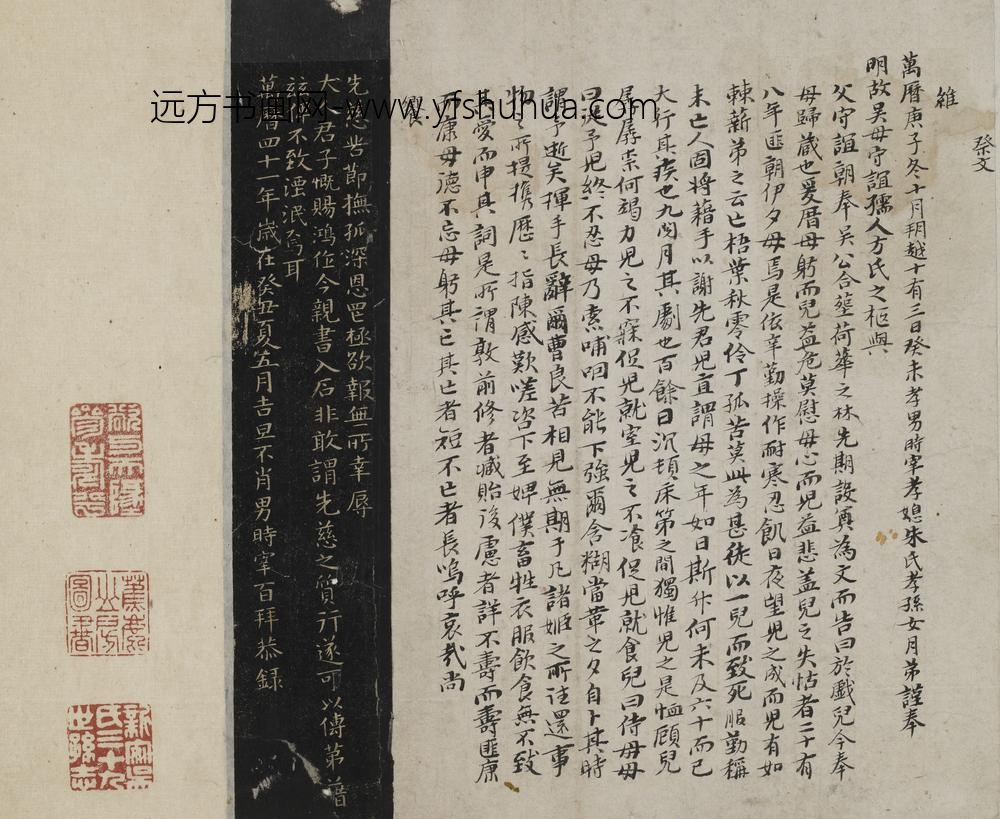 祭文
維
萬曆庚子冬十月朔越十有三日癸未孝男時宰孝媳朱氏孝孫女月弟謹奉
明故吴母守誼孺人方氏之柩與
父守誼朝奉吴公合塟荷華之林先期設奠為文而告曰於戲兒今奉
母歸藏也爰厝母躬而兒益危莫慰母心而児益悲盖兒之失怙者二十有
八年匪朝伊夕母焉是依辛勤操作耐寒忍飢日夜望児之成而児有如
棘薪弟之云亡梧葉秋零伶丁孤苦莫此為甚徒以一兒而致死服勤稱
未亡人固將藉手以謝先君児宜謂母之年如日斯升何未及六十而已
大行其疾也九閱月其劇也百餘日沉頓床第之間獨惟児之是恤顧兒
孱孱柰何竭力児之不寐促児就室児之不飡促児就食兒曰侍母母
曰是予児終不忍母乃索哺咽不能下強爾含糊當革之夕自卜其時
謂予逝矣揮手長辭爾曹良苦相見無期于凡諸姬之所往還事
物之所提携歷〻指陳感歎嗟咨下至婢僕畜牲衣服飲食無不致
其愛而申其詞是所謂敦前修者臧貽後慮者詳不壽而壽匪康
而康母德不忘母躬其亡其亡者短不亡者長嗚呼哀哉尚
饗
先慈苦節撫孤深恩罔極欲報無所幸辱
大人君子慨賜鴻作今親書入石非敢謂先慈之質行遂可以傳第普
不致湮泯焉耳
萬曆四十一年歲在癸丑夏五月吉旦不肖男時宰百拜恭録
远方书画网-www.yfshuhua.com